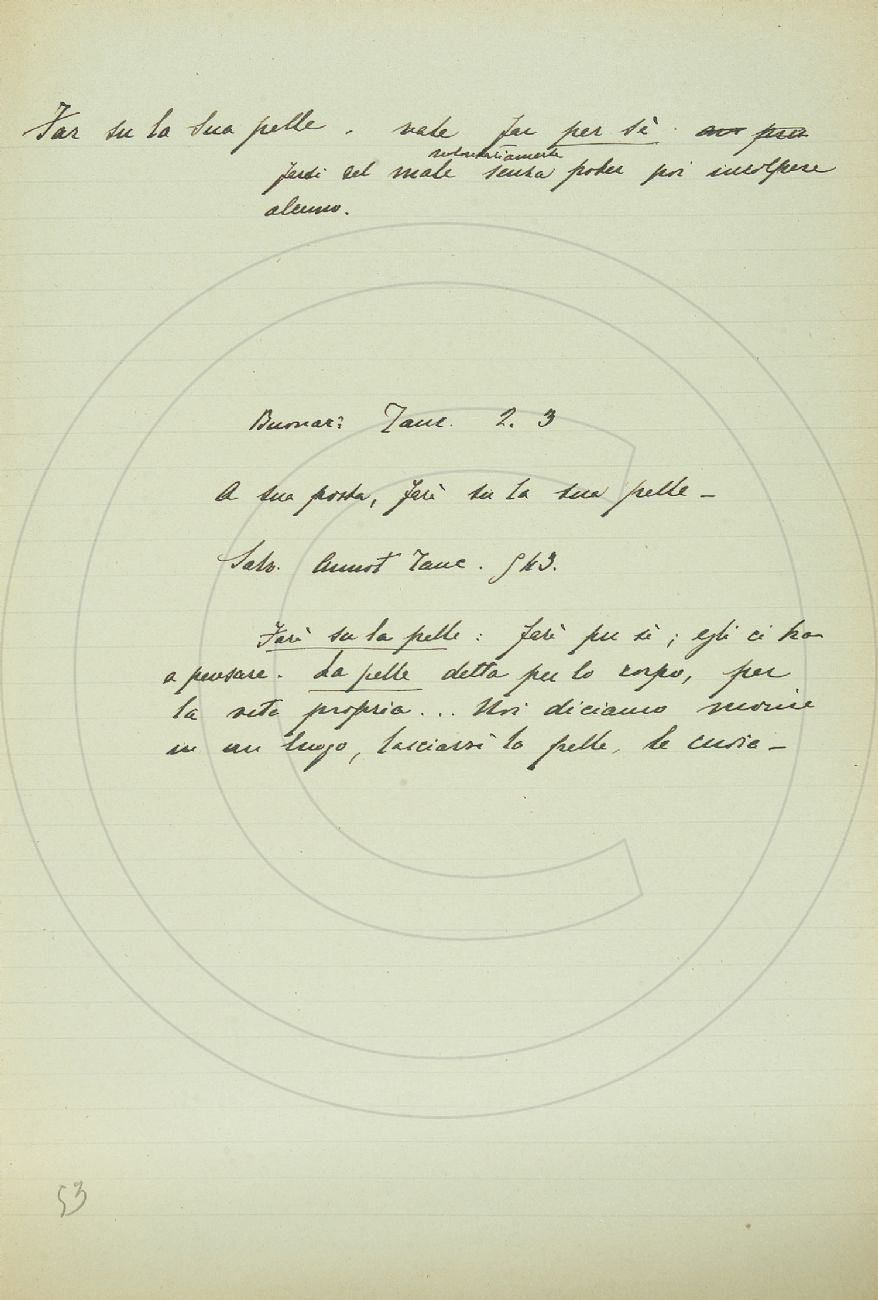 Far su la sua pelle. vale far per sè.
volontariamente
farsi del male senza poter poi incolpare
alcuno.
Buonar: Tanc. 2. 3
A sua posta, farà su la sua pelle –
Salv. Annot Tanc. 543.
Farà su la pelle: farà per sè; egli ci ha
a pensare. La pelle detta per lo corpo, per
la vita propria... Noi diciamo morire
in un luogo, lasciarvi la pelle, le cuoia –
53